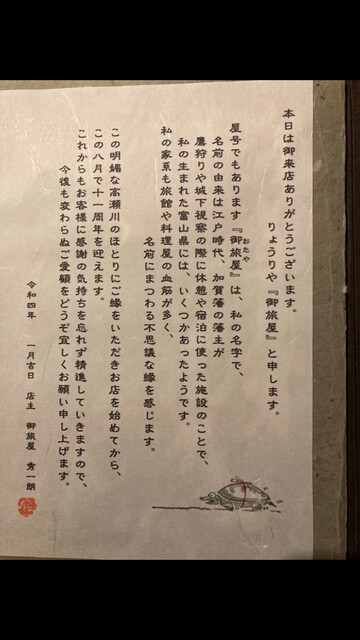 本日は御来店ありがとうございます。
りょうりや『御旅屋』と申します。
屋号でもあります『御旅屋』は、私の名字で、
おたや
名前の由来は江戸時代、加賀藩の藩主が
鷹狩りや城下視察の際に休憩や宿泊に使った施設のことで、
私の生まれた富山県には、いくつかあったようです。
私の家系も旅館や料理屋の血筋が多く、
名前にまつわる不思議な縁を感じます。
この明媚な高瀬川のほとりにご縁をいただきお店を始めてから、
この八月で十一周年を迎えます。
これからもお客様に感謝の気持ちを忘れず精進していきますので、
今後も変わらぬご愛顧をどうぞ宜しくお願い申し上げます。
令和四年 一月吉日 店主 御旅屋 秀一朗